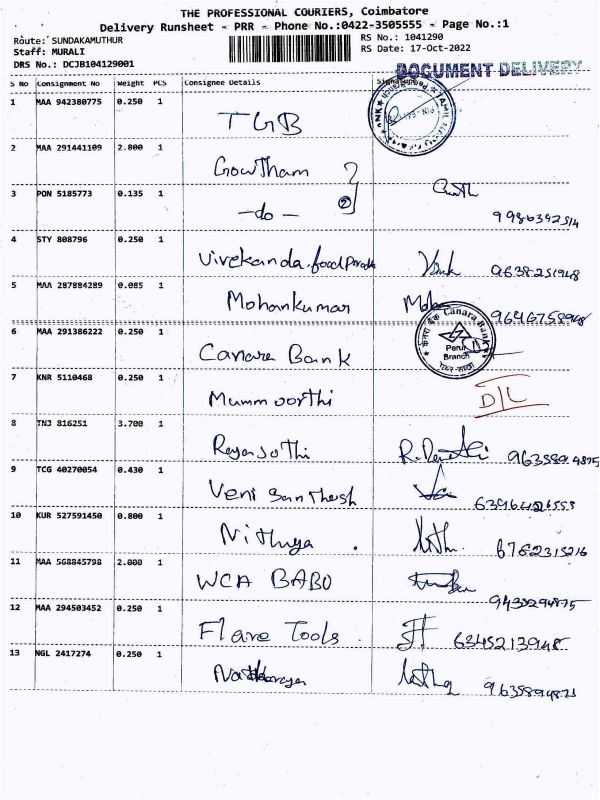 THE PROFESSIONAL COURIERS, Coimbatore
Delivery Runsheet - PRR - Phone No.:0422-3505555 - Page No.:1
Route: SUNDAKAMUTHUR RS No.: 1041290
Staff: MURALI RS Date: 17-Oct-2022
DRS No.: DCJB104129001
DOCUMENT DELIVERY
S No Consignment No Weight PCS Consignee Details
1 MAA 942380775 0.250 1 TGB
2 MAA 291441109 2.800 1 Gowtham
3 PON 5185773 0.135 1 -do-
4 STY 808796 0.250 1 Vivekanda.food 9638251948
5 MAA 287884289 0.085 1 Mohankumar 9646758948
6 MAA 291386222 0.250 1 Canara Bank
Canara Bank
Branch
7 KNR 5110468 0.250 1 Mummoorthi D/L
8 TNJ 816251 3.700 1
9 TCG 40270054 0.430 1 Veni
10 KUR 527591450 0.800 1 Nithya 6762315216
11 MAA 568845798 2.000 1 WCA BABU 9435294875
12 MAA 294503452 0.250 1 Flare Tools 6345213948
13 NGL 2417274 0.250 1